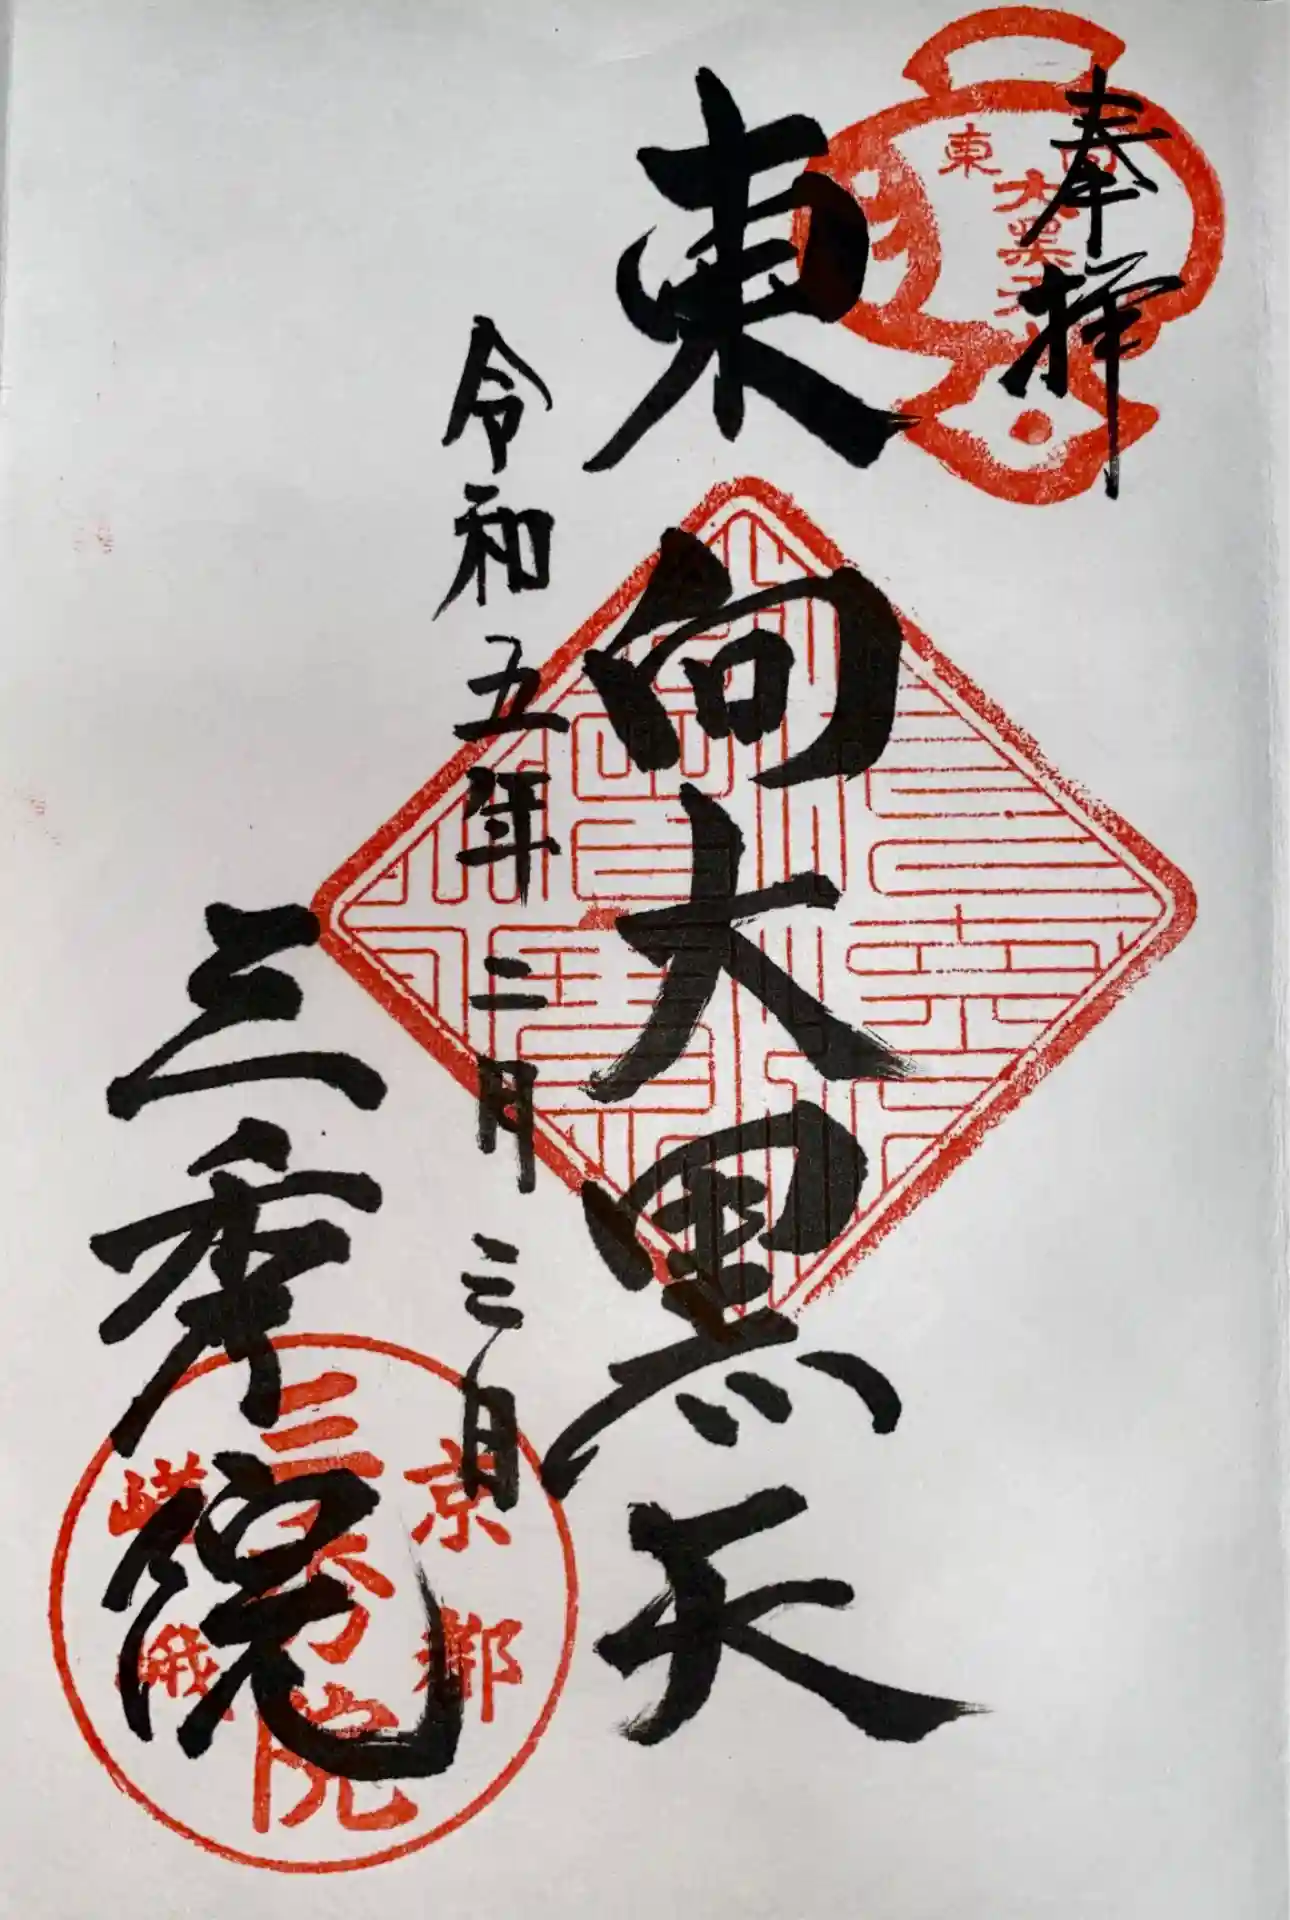 奉拝
東向大黒天
令和五年二月三日
三秀院
東向
大黒天
京都
三秀院
嵯峨